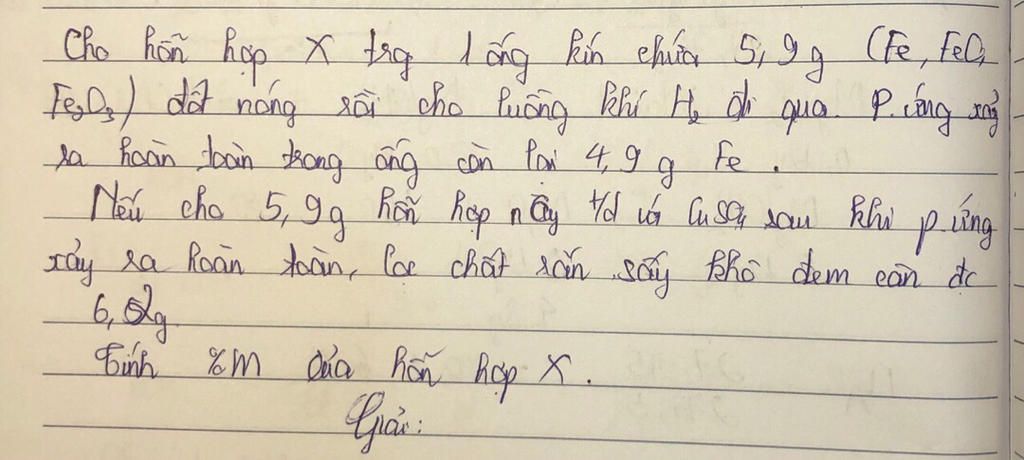 Cho hỗn hợp X trg 1 ống kín chứa 5,9g (Fe, FeO,
Fe₂O₃) đốt nóng rồi cho luồng khí H₂ đi qua. P.ứng xảy
ra hoàn toàn trong ống còn lại 4,9 g Fe.
Nếu cho 5,9g hỗn hợp này t/d với CuSO₄ sau khi p.ứng
xảy ra hoàn toàn, lọc chất rắn sấy khô đem cân đc
6,2g
Tính %m của hỗn hợp X.
Giải: